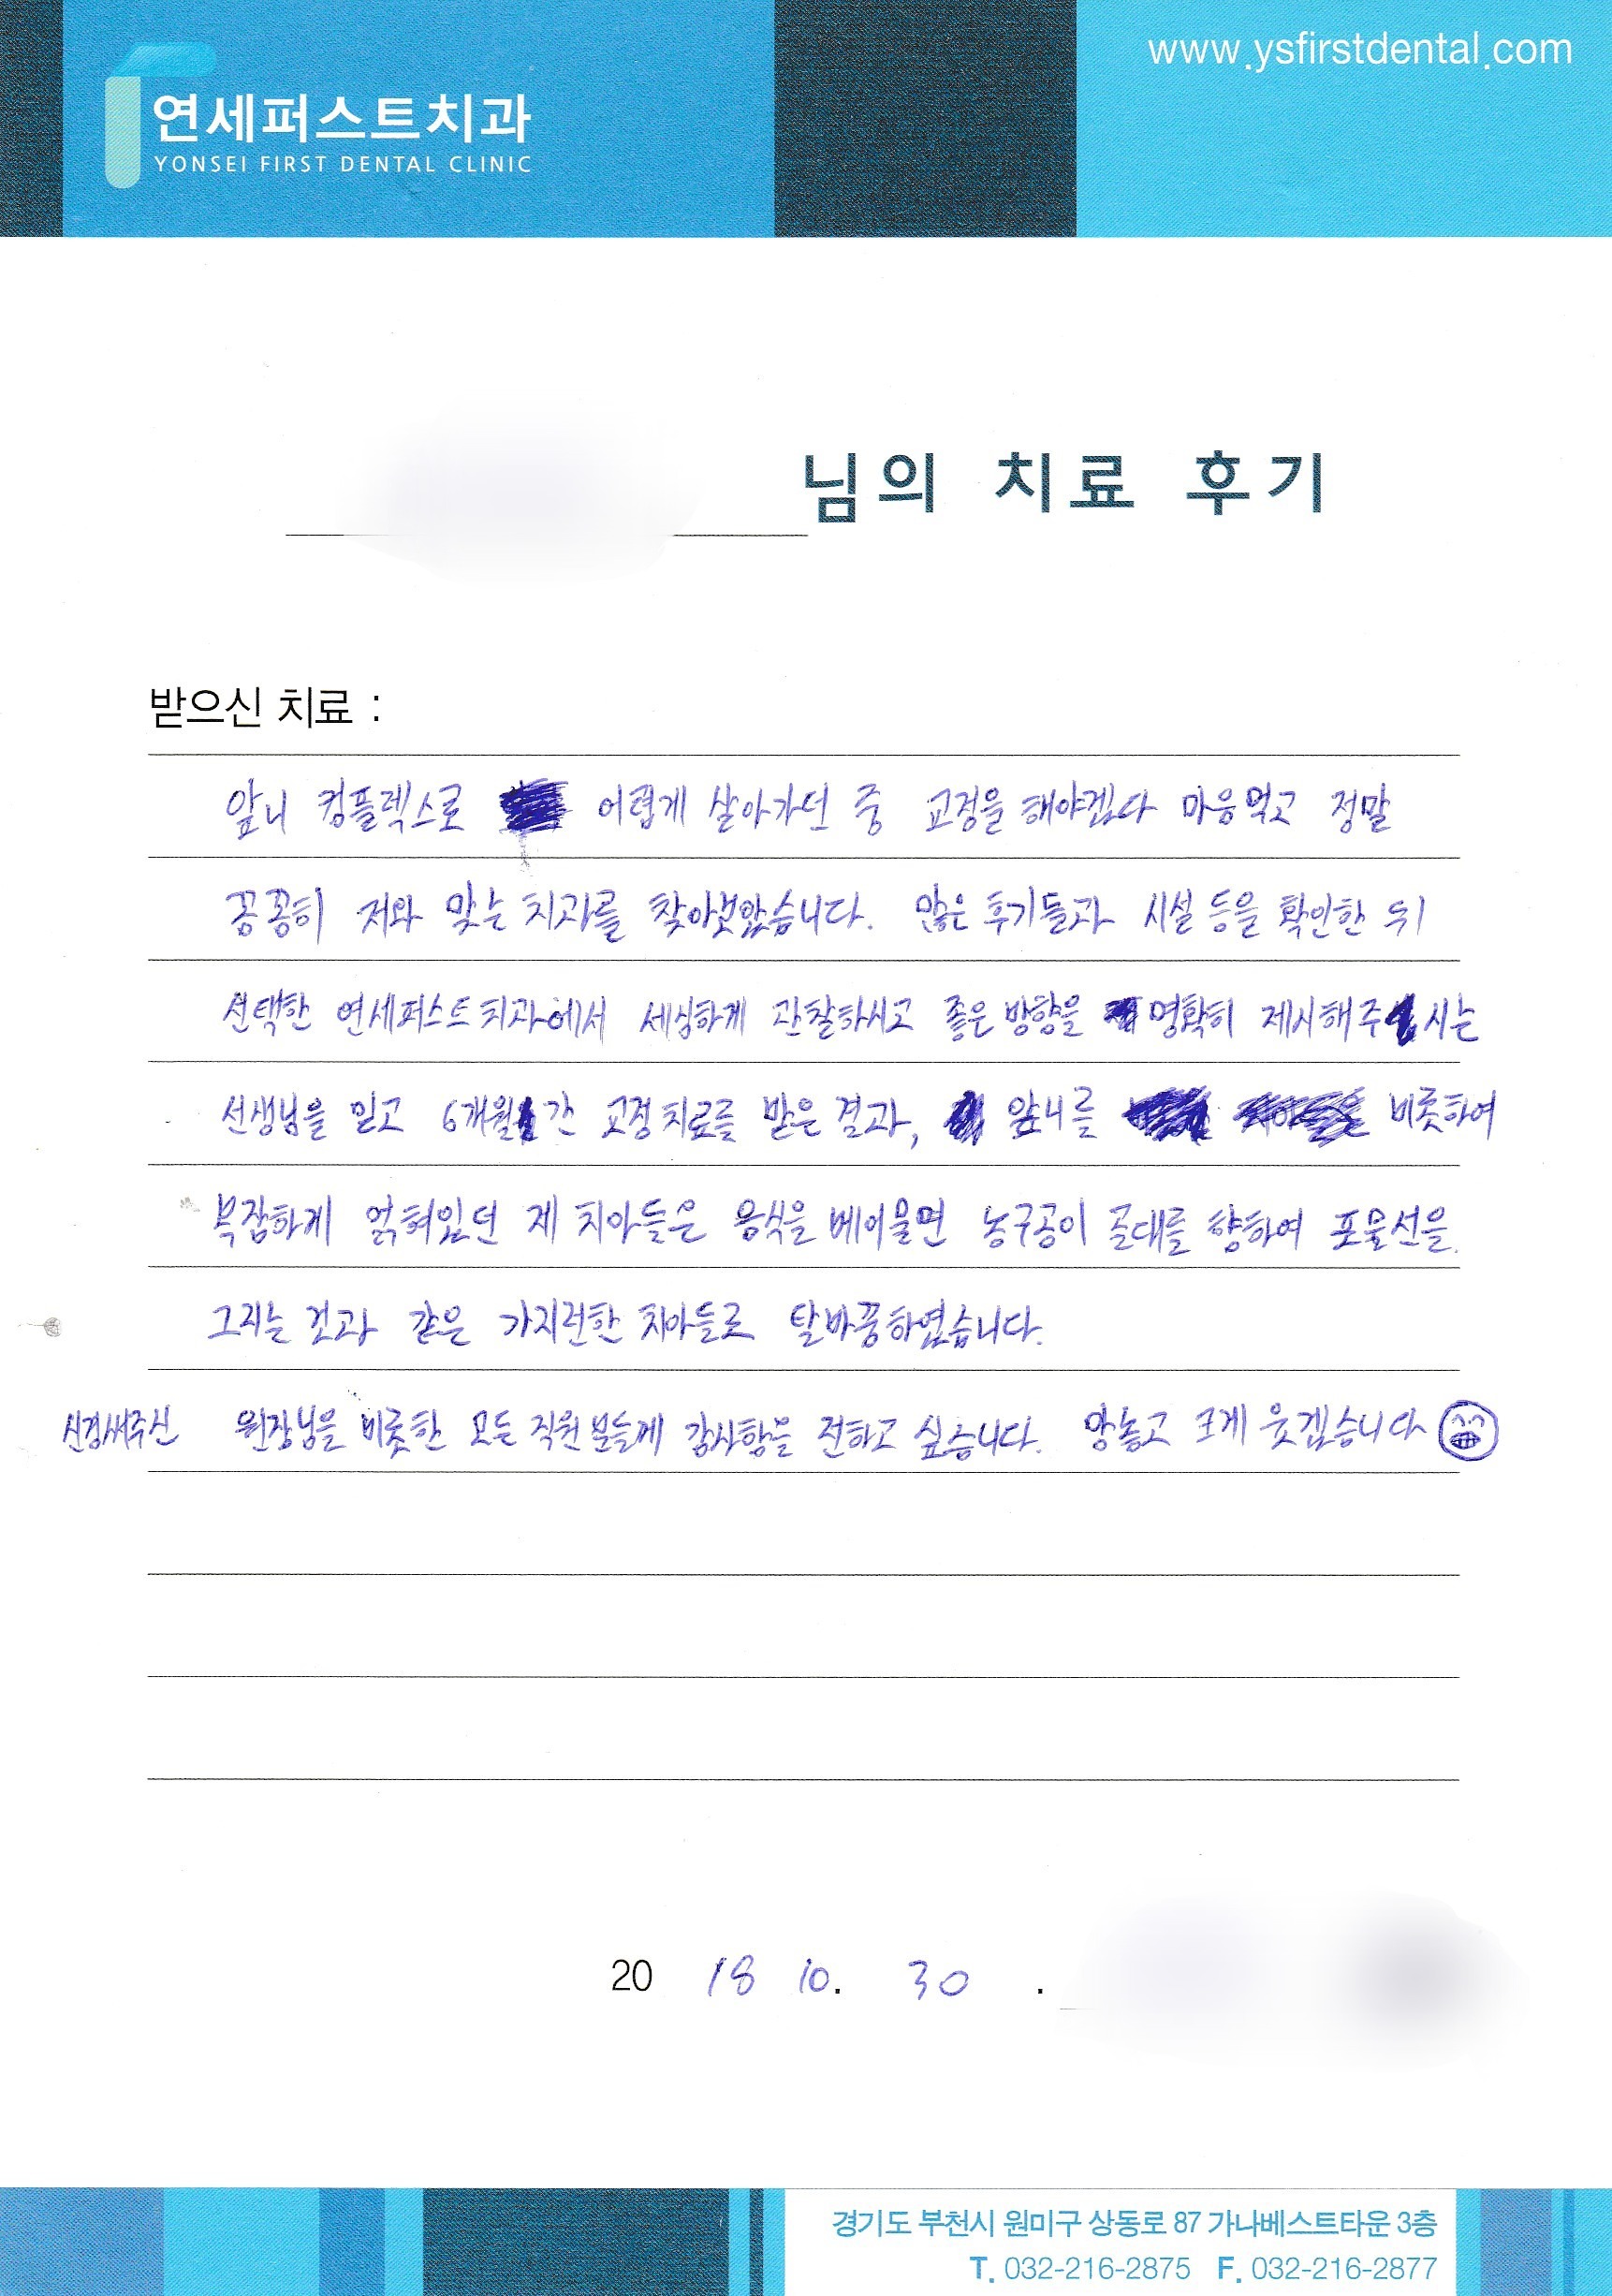 연세퍼스트치과
YONSEI FIRST DENTAL CLINIC
www.ysfirstdental.com
님의 치료 후기
받으신 치료 :
앞니 컴플렉스로 어렵게 살아가던 중 교정을 해야겠다 마음먹고 정말
꼼꼼히 저와 맞는 치과를 찾아보았습니다. 많은 후기들과 시설 등을 확인한 뒤
선택한 연세퍼스트치과에서 세심하게 관찰하시고 좋은 방향을 명확히 제시해주시는
선생님을 믿고 6개월간 교정치료를 받은 결과, 앞니를 비롯하여
복잡하게 얽혀있던 제 치아들은 음식을 베어물면 농구공이 골대를 향하여 포물선을
그리는 것과 같은 가지런한 치아들로 탈바꿈하였습니다.
신경써주신 원장님을 비롯한 모든 직원분들께 감사함을 전하고 싶습니다. 맘놓고 크게 웃겠습니다
20 18 10. 30 .
경기도 부천시 원미구 상동로 87 가나베스트타운 3층
T. 032-216-2875 F. 032-216-2877